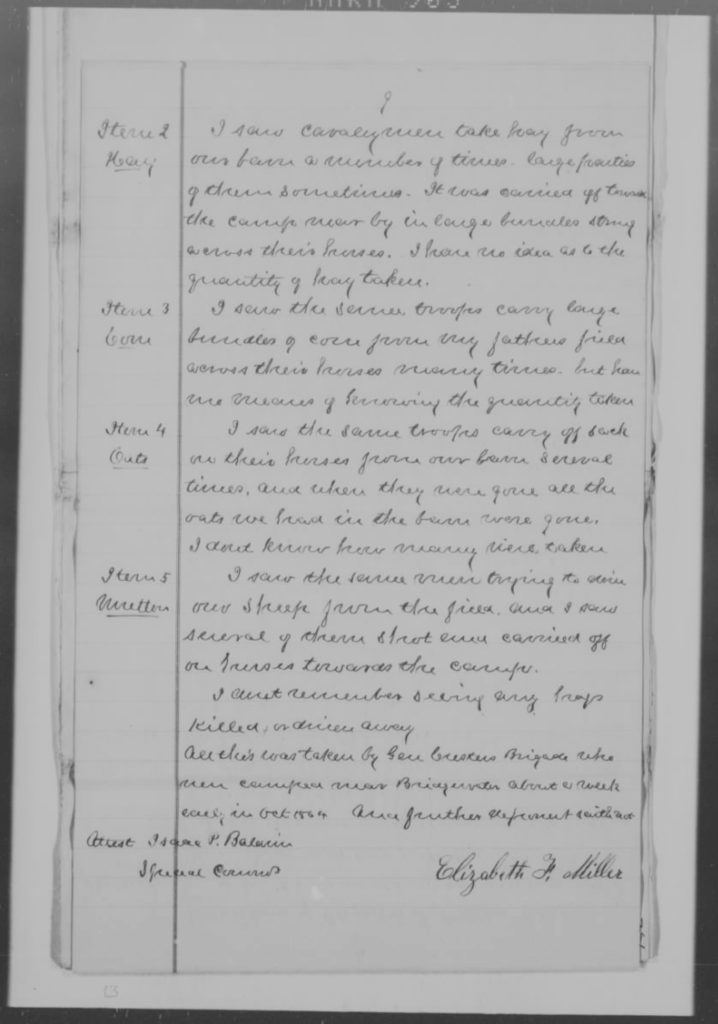 9
Item 2 I saw cavalrymen take hay from
Hay our barn a number of times. large parties
of them sometimes. It was carried off towards
the camp near by in large bundles strung
across their horses. I have no idea as to the
quantity of hay taken.
Item 3 I saw the same troops carry large
Corn bundles of corn from my fathers field
across their horses many times. but have
no means of knowing the quantity taken
Item 4 I saw the same troops carry off sack
Oats on their horses from our barn several
times, and when they were gone all the
oats we had in the barn were gone.
I dont know how many were taken
Item 5 I saw the same men trying to drive
Mutton our sheep from the field, and I saw
several of them shot and carried off
on horses towards the camp.
I dont remember seeing any hogs
killed, or driven away
All this was taken by Gen Custers Brigade who
were camped near Bridgewater about a week
early in Oct 1864 And further deponent saith not
Attest Isaac P. Baldwin
Special Commr Elizabeth F. Miller
13